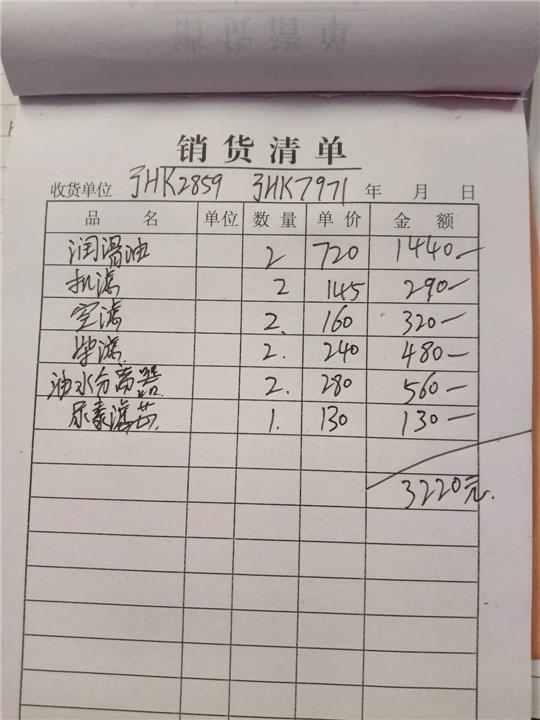 销货清单
收货单位 HK2859 HK7971 年 月 日
品 名 单位 数量 单价 金 额
润滑油 2 720 1440—
机滤 2 145 290—
空滤 2. 160 320—
柴滤. 2. 240 480—
油水分离器 2. 280 560—
尿素滤芯. 1. 130 130—
3220元.